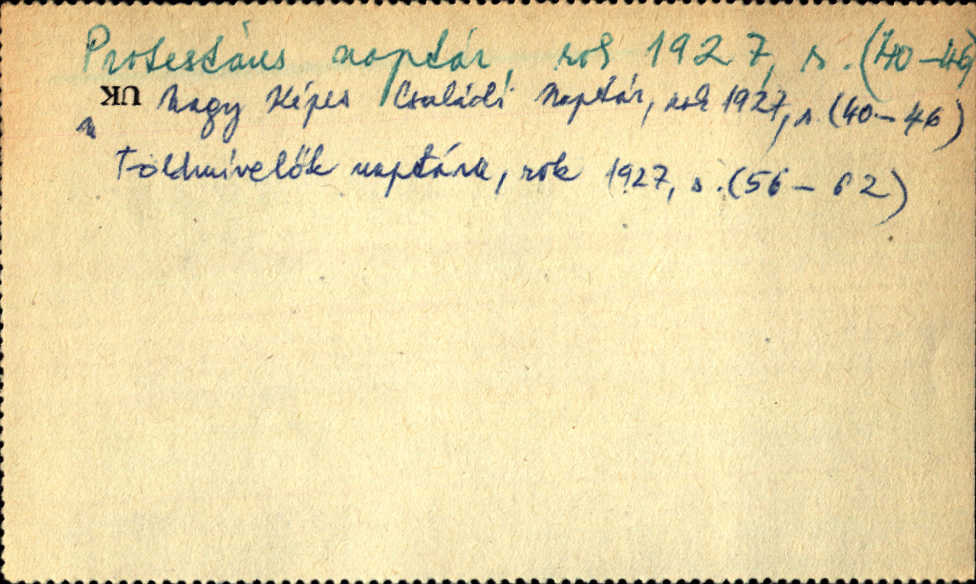 Protestáns naptár rok 1927, s. (40–46)
UK Nagy Képes Családi Naptár, rok 1927, s. (40–46)
Földmívelők naptára, rok 1927, s. (56–62)